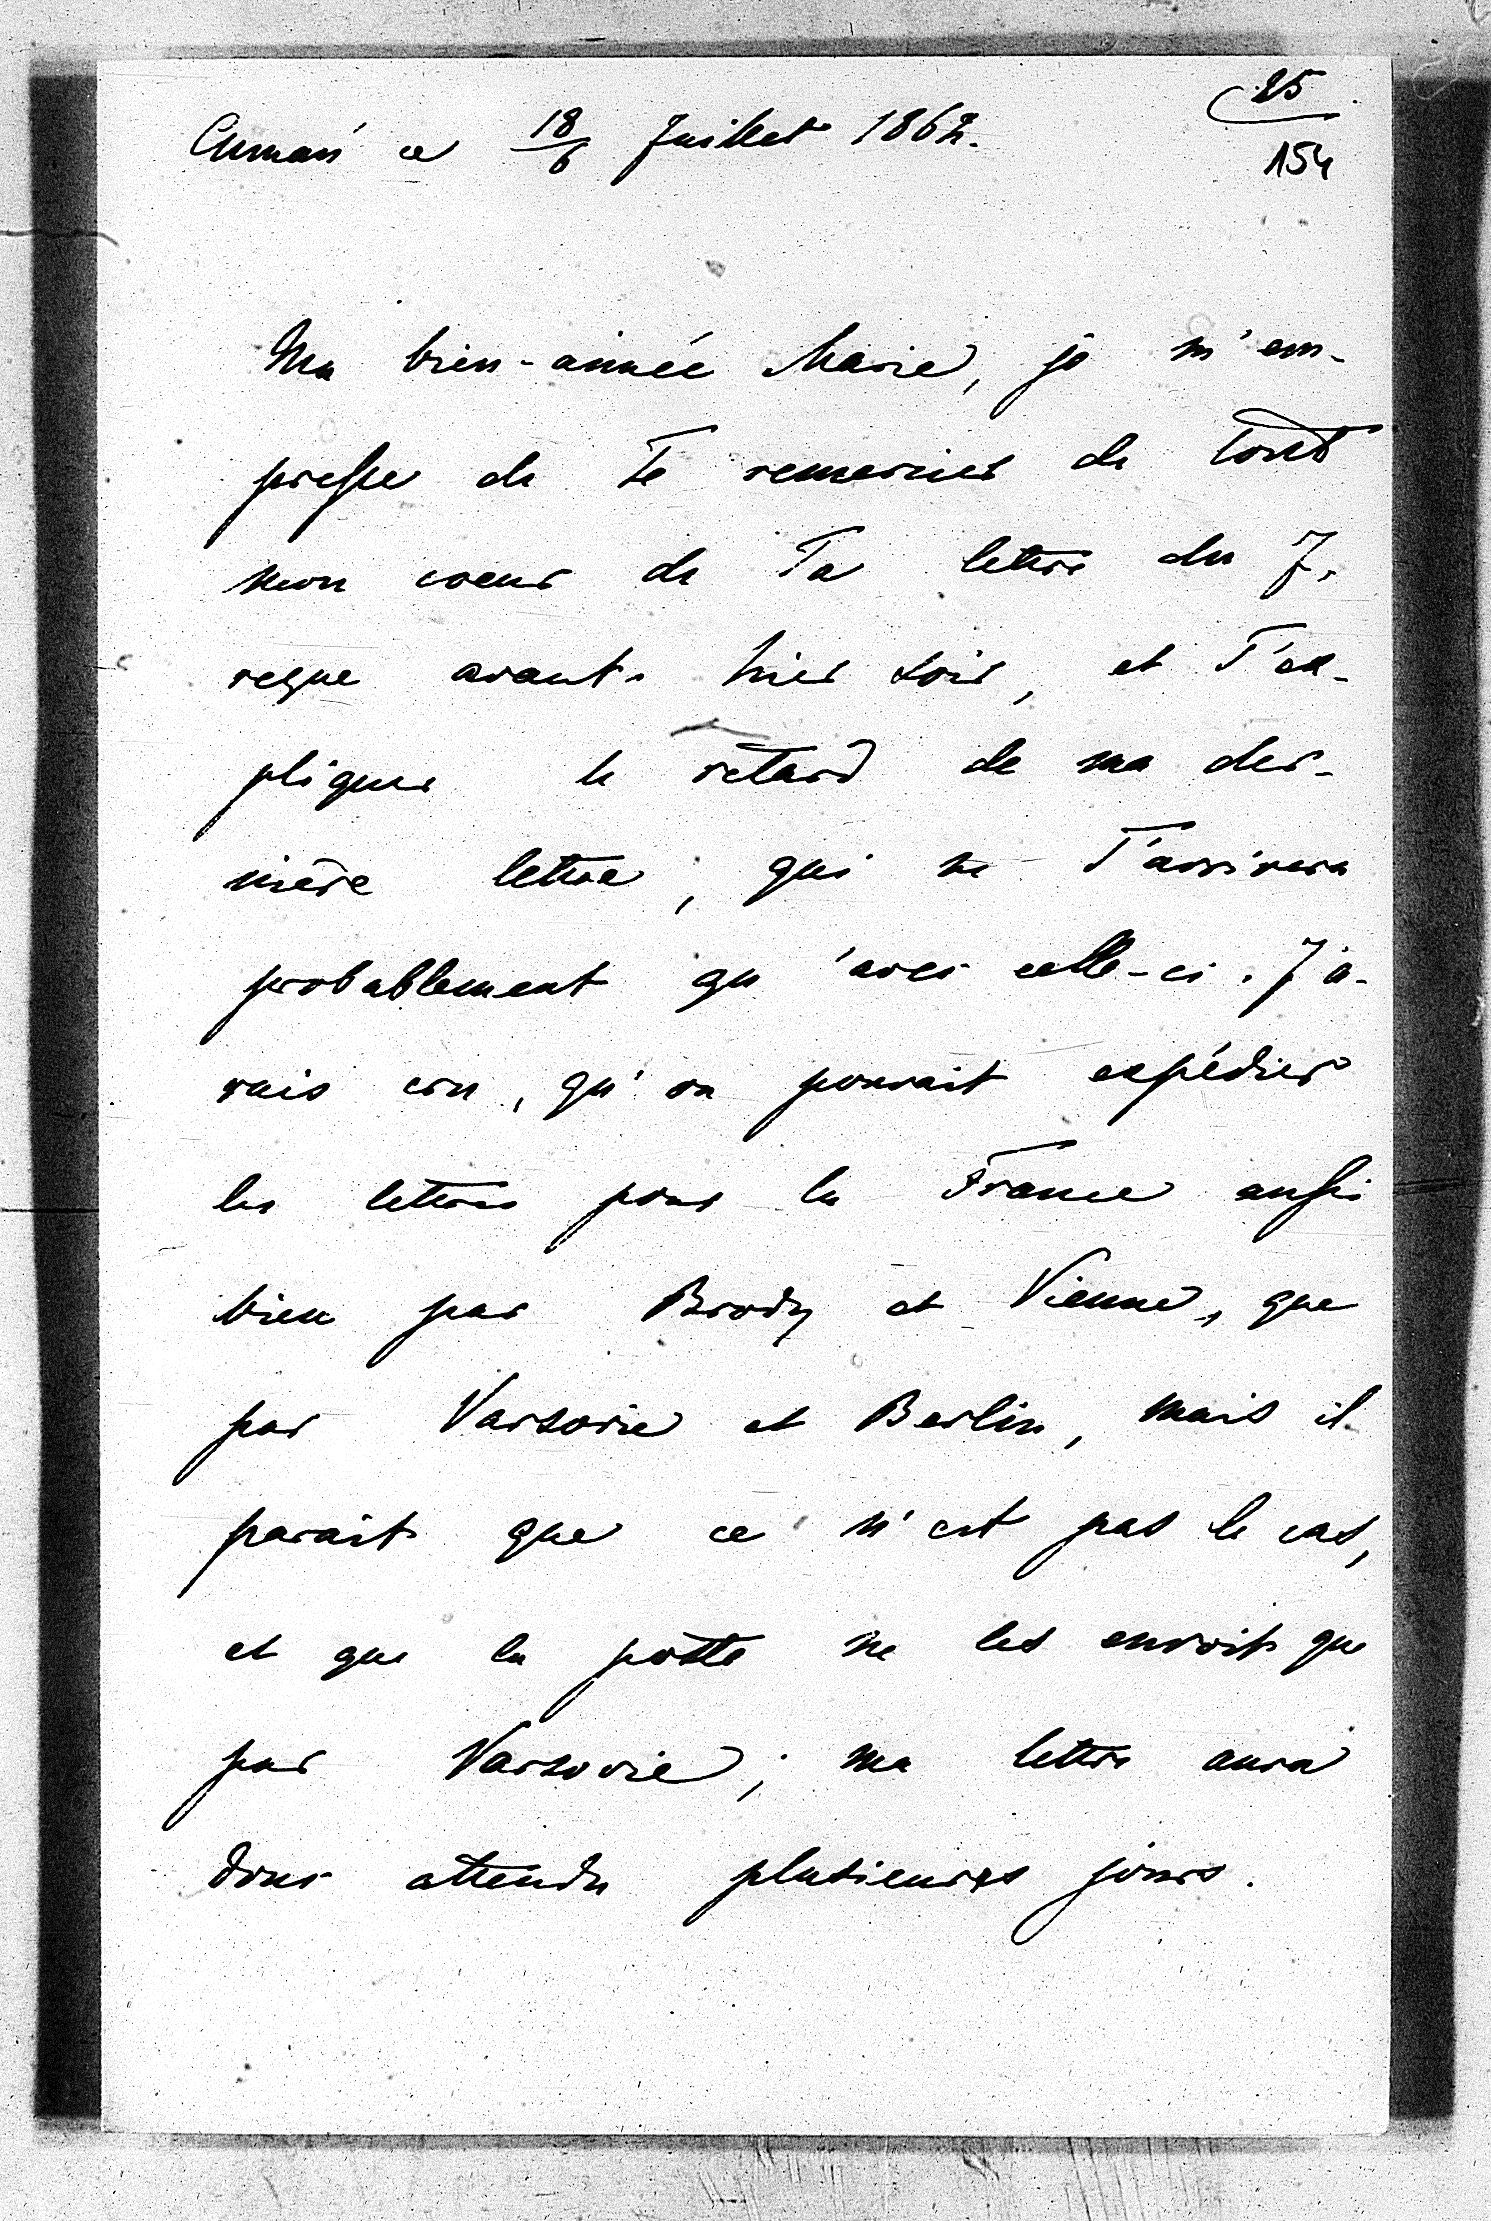 25
154
Cumań ce 18/6 Juillet 1862.
Ma bien-aimée Marie, je m'em-
presse de Te remercier de tout
mon coeur de Ta lettre du 7,
reçue avant-hier soir, et T'ex-
pliquer le retard de ma der-
nière lettre, qui ne T'arrivera
probablement qu'avec celle-ci. J'a-
vais cru, qu'on pouvait expédier
les lettres pour la France aussi
bien par Brody et Vienne, que
par Varsovie et Berlin, mais il
parait que ce n'est pas le cas,
et que la poste ne les envoit que
par Varsovie; ma lettre aura
donc attendu plusieures jours.